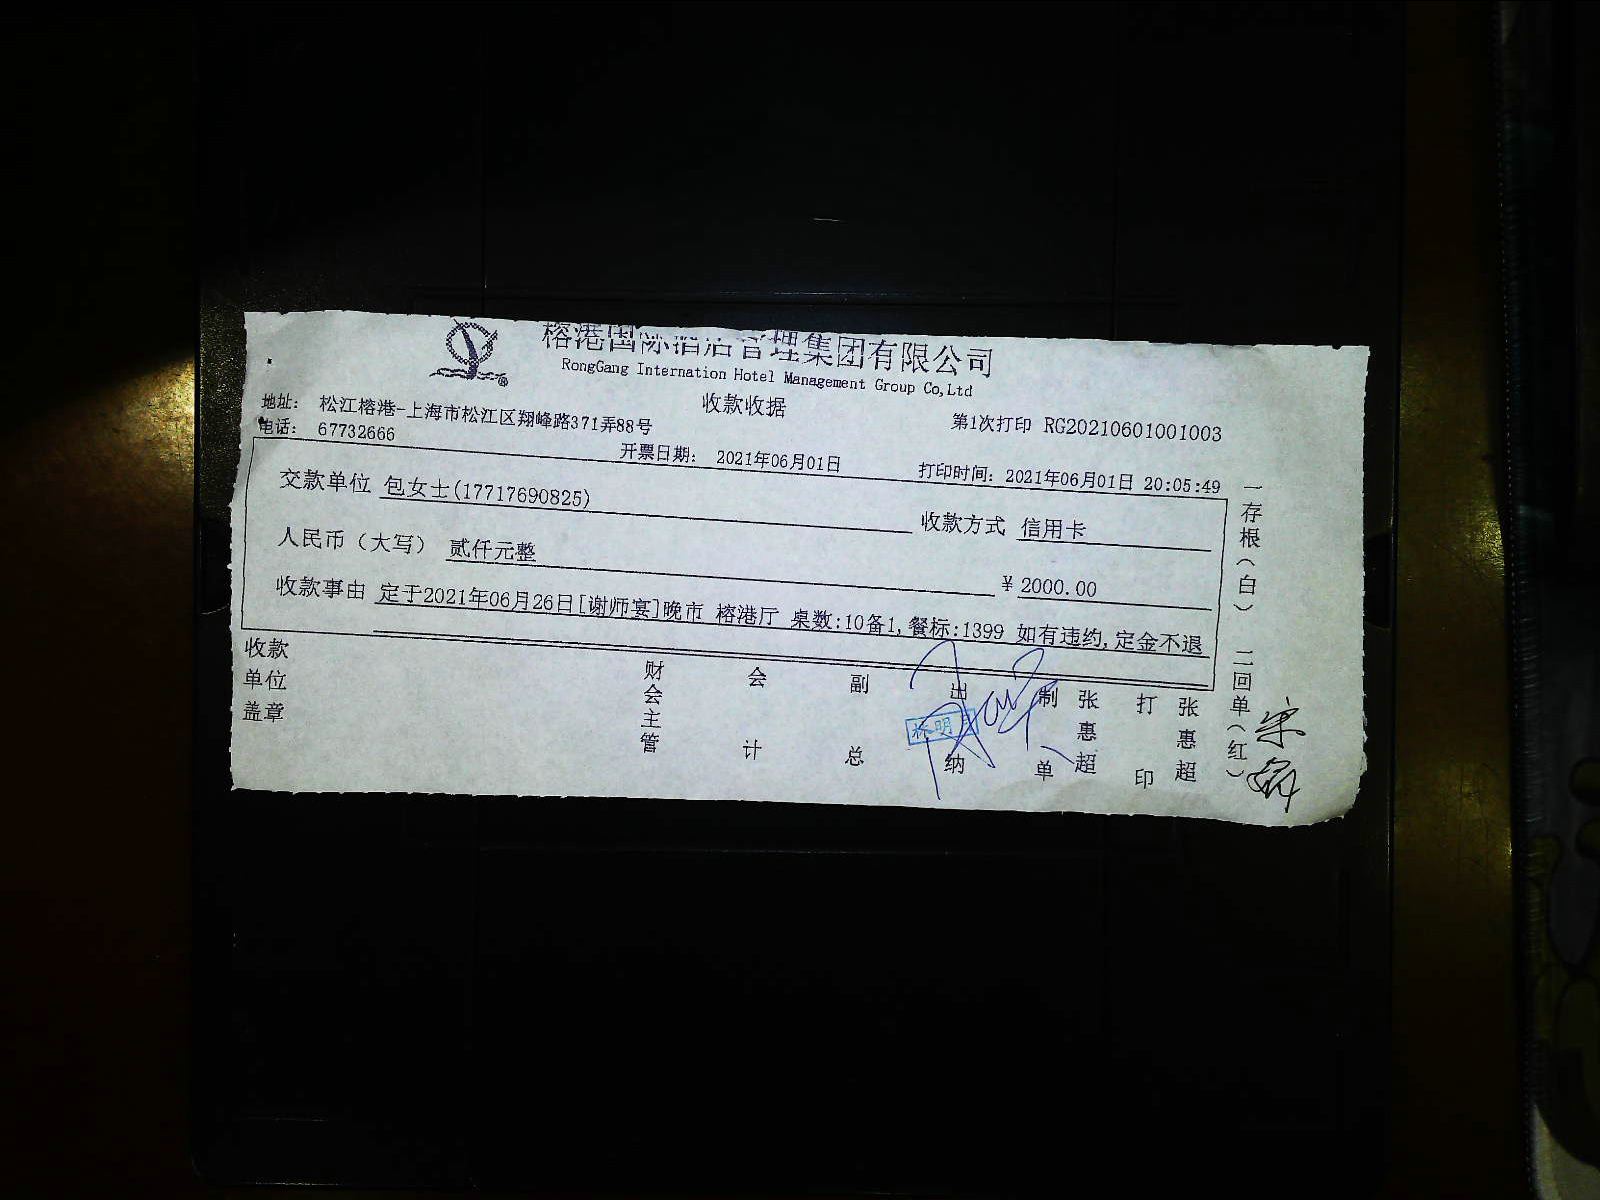 榕港国际酒店管理集团有限公司
RongGang Internation Hotel Management Group Co,Ltd
收款收据
地址: 松江榕港-上海市松江区翔峰路371弄88号
第1次打印 RG20210601001003
电话: 67732666
开票日期: 2021年06月01日
打印时间: 2021年06月01日 20:05:49
交款单位 包女士(17717690825)
收款方式 信用卡
人民币(大写) 贰仟元整
¥ 2000.00
收款事由 定于2021年06月26日[谢师宴]晚市 榕港厅 桌数:10备1,餐标:1399 如有违约,定金不退
收款单位盖章
财会主管
会计
副总
出纳
制单
张惠超
打印
张惠超
一存根(白) 二回单(红)